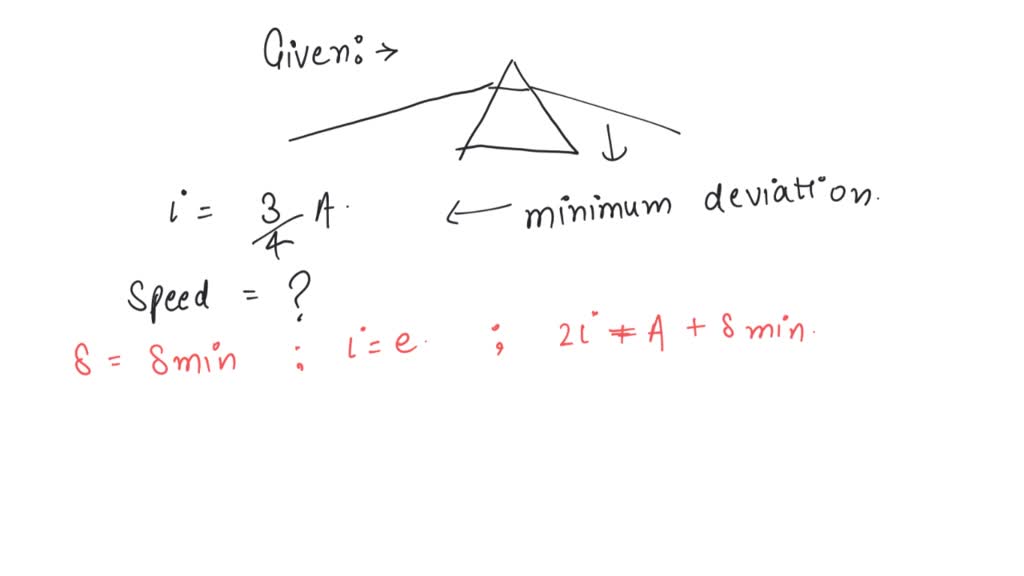 Given: →
i = 3/4 A. ← minimum deviation.
Speed = ?
δ = δmin ; i = e. ; 2i = A + δmin.